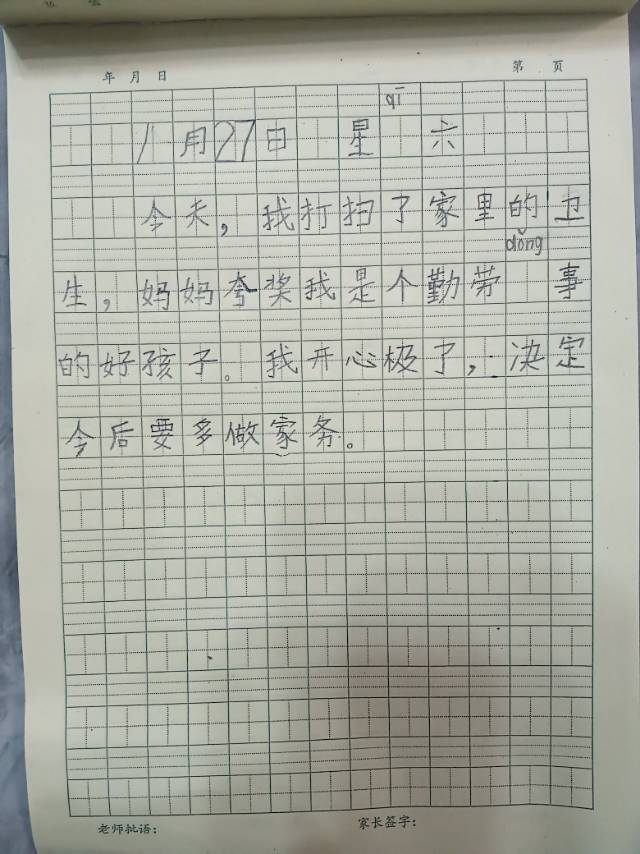 年 月 日 第 页
qī
1月27日 星 六
今天，我打扫了家里的卫
dǒng
生，妈妈夸奖我是个勤劳 事
的好孩子。我开心极了，决定
今后要多做家务。
老师批语： 家长签字：